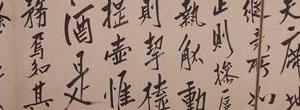 天席
縱意所如
止則操卮
執觚動
則挈榼
提壺惟
酒是
務焉知其